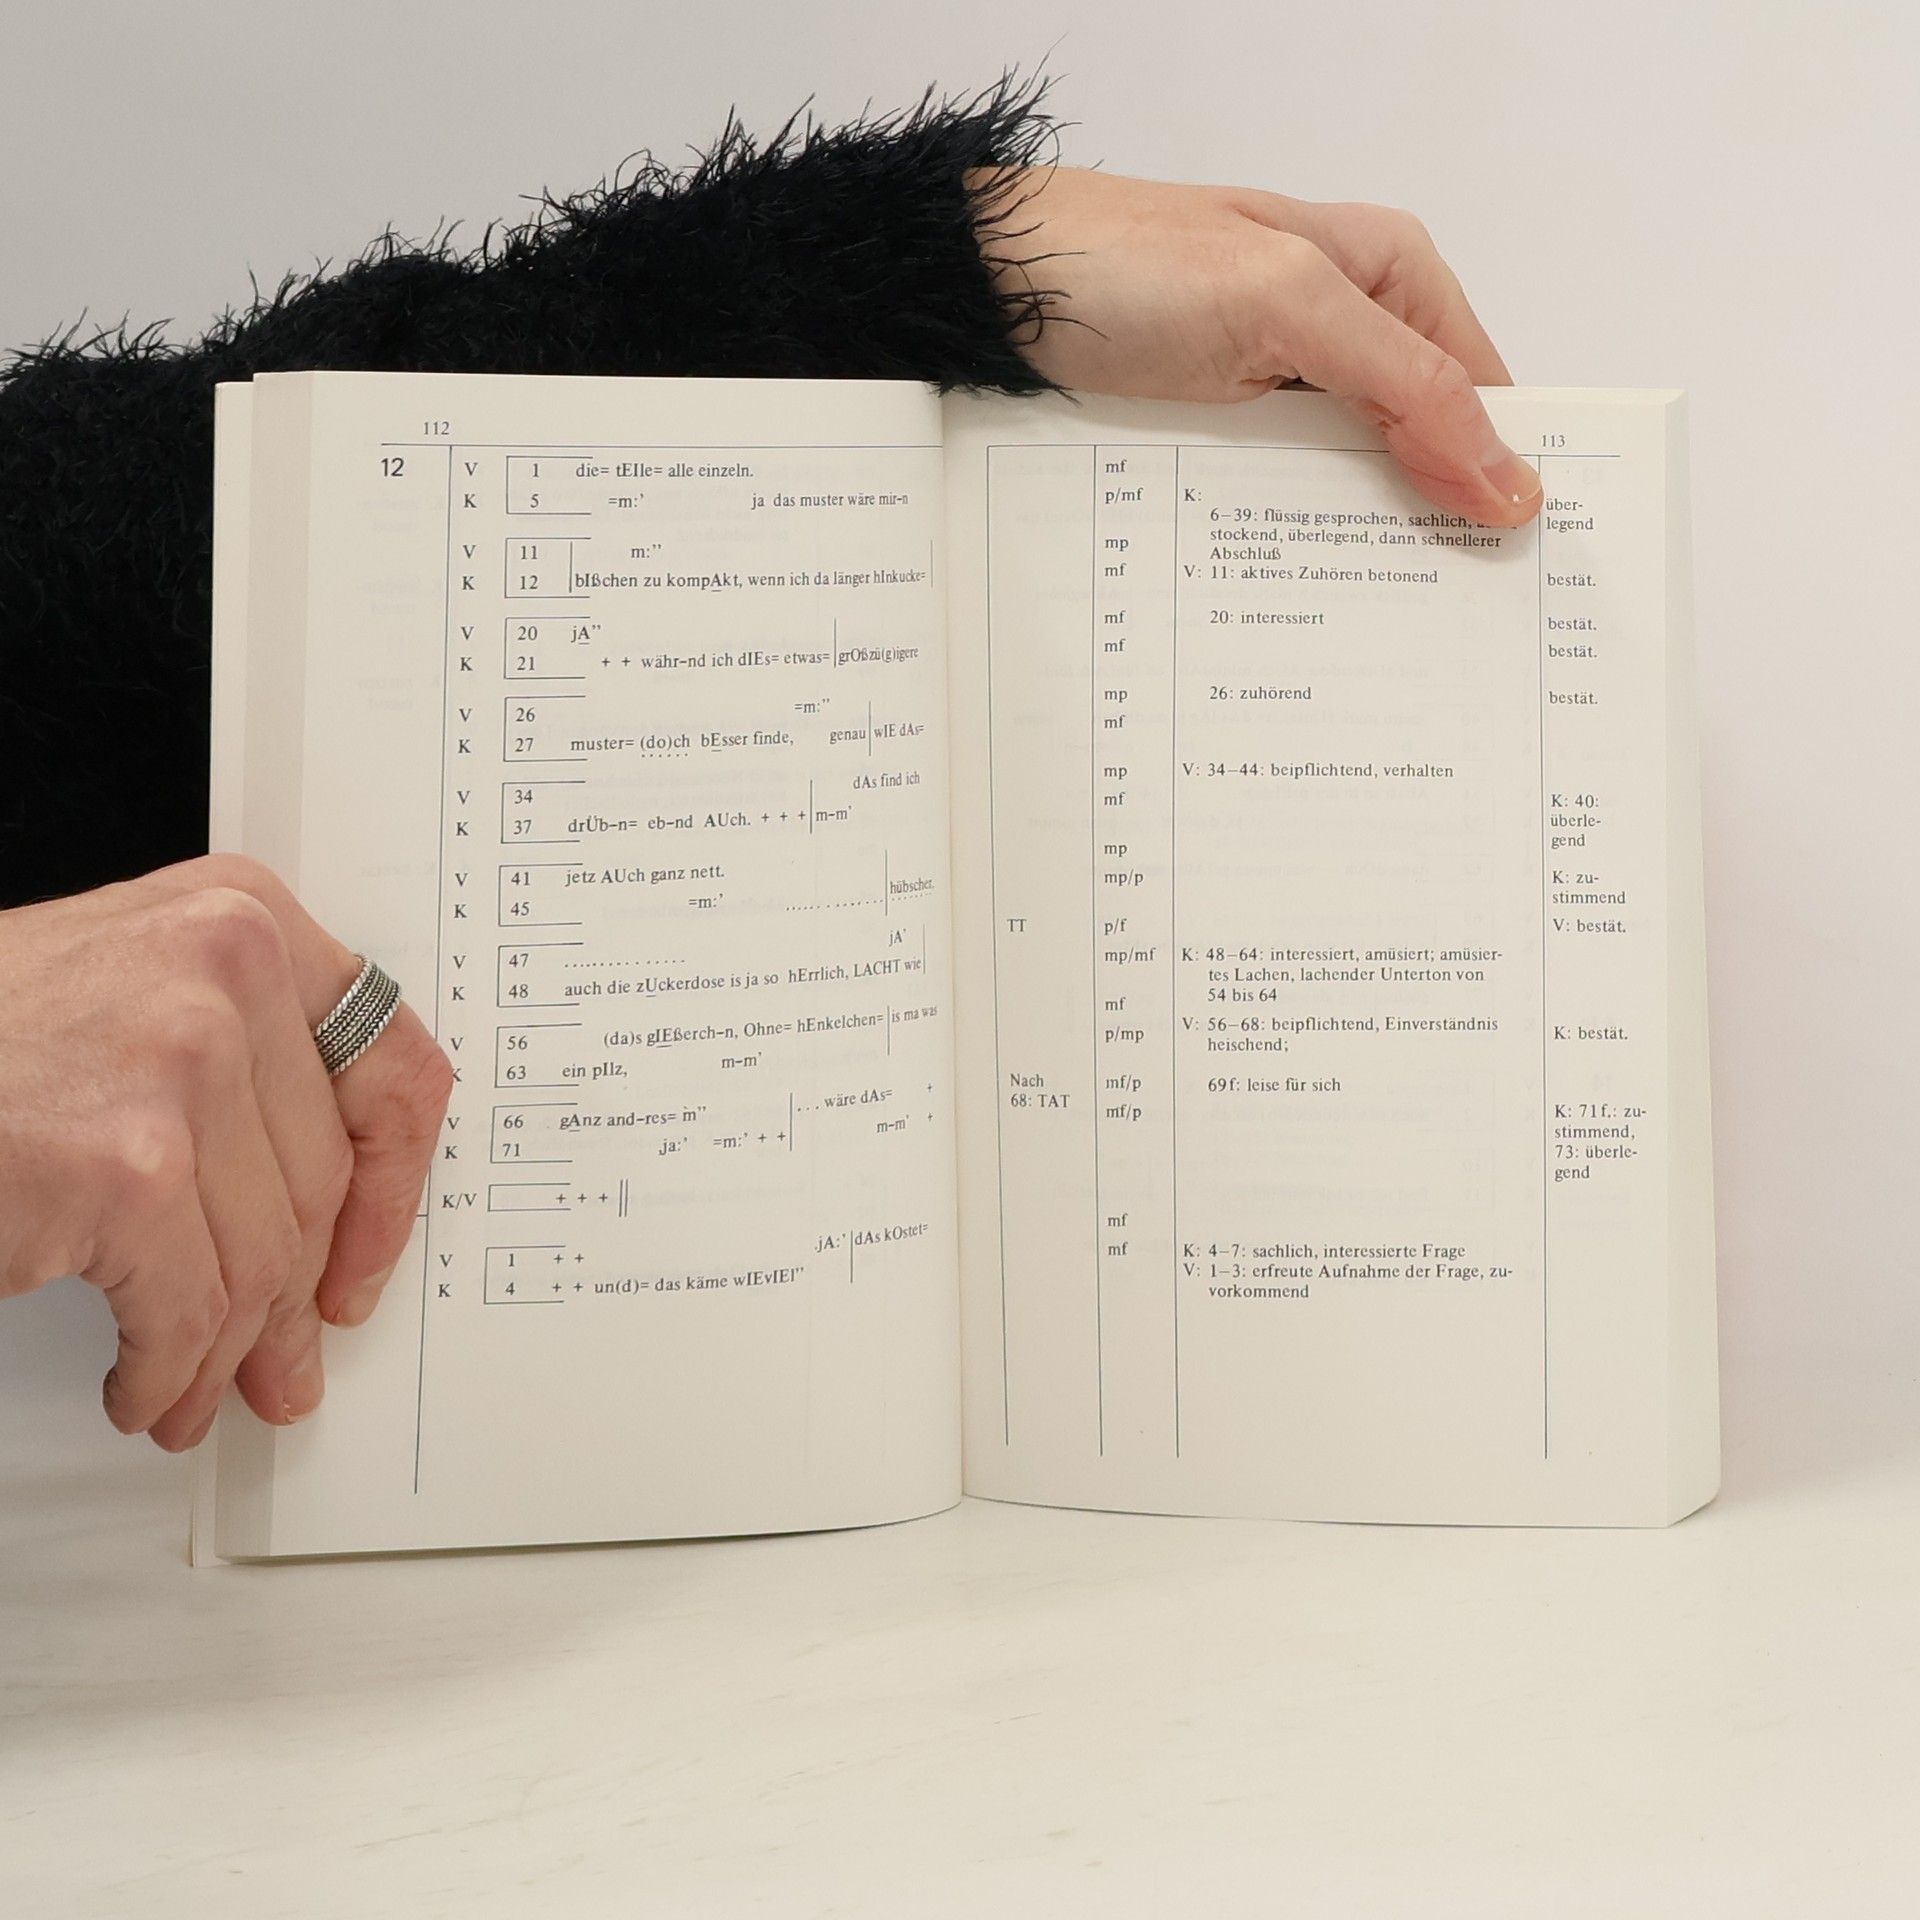 112
12 V 1 die= tEIle= alle einzeln.
K 5 =m:' ja das muster wäre mir-n
V 11 m:''
K 12 bIßchen zu kompAkt, wenn ich da länger hInkucke=
V 20 jA''
K 21 + + währ-nd ich dIEs= etwas= grOßzü(g)igere
V 26 =m:''
K 27 muster= (do)ch bEsser finde, genau wIE dAs=
V 34 dAs find ich
K 37 drÜb-n= eb-nd AUch. + + + m-m'
V 41 jetz AUch ganz nett.
K 45 =m:' ............. hübscher.
V 47 .............. jA'
K 48 auch die zUckerdose is ja so hErrlich, LACHT wie
V 56 (da)s gIEßerch-n, Ohne= hEnkelchen= is ma was
K 63 ein pIlz, m-m'
V 66 gAnz and-res= m'' ... wäre dAs= +
K 71 ja:' =m:' + + m-m' +
K/V + + +
V 1 + + jA:' dAs kOstet=
K 4 + + un(d)= das käme wIEvIEl''
113
mf
p/mf K: über-
6–39: flüssig gesprochen, sachlich, legend
stockend, überlegend, dann schnellerer
mp Abschluß
mf V: 11: aktives Zuhören betonend bestät.
mf 20: interessiert bestät.
mf bestät.
mp 26: zuhörend bestät.
mf
mp V: 34–44: beipflichtend, verhalten
mf K: 40:
überle-
gend
mp
mp/p K: zu-
stimmend
TT p/f V: bestät.
mp/mf K: 48–64: interessiert, amüsiert; amüsier-
tes Lachen, lachender Unterton von
mf 54 bis 64
p/mp V: 56–68: beipflichtend, Einverständnis K: bestät.
heischend;
Nach mf/p 69f: leise für sich
68: TAT mf/p K: 71f.: zu-
stimmend,
73: überle-
gend
mf
mf K: 4–7: sachlich, interessierte Frage
V: 1–3: erfreute Aufnahme der Frage, zu-
vorkommend